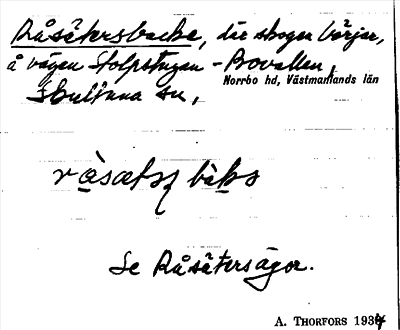 Råsätersbacke, där skogen börjar,
å vägen Stolpstugan - Bovallen,
Norrbo hd, Västmanlands län
Skultuna sn,
Se Råsätersägor.
A. THORFORS 1934